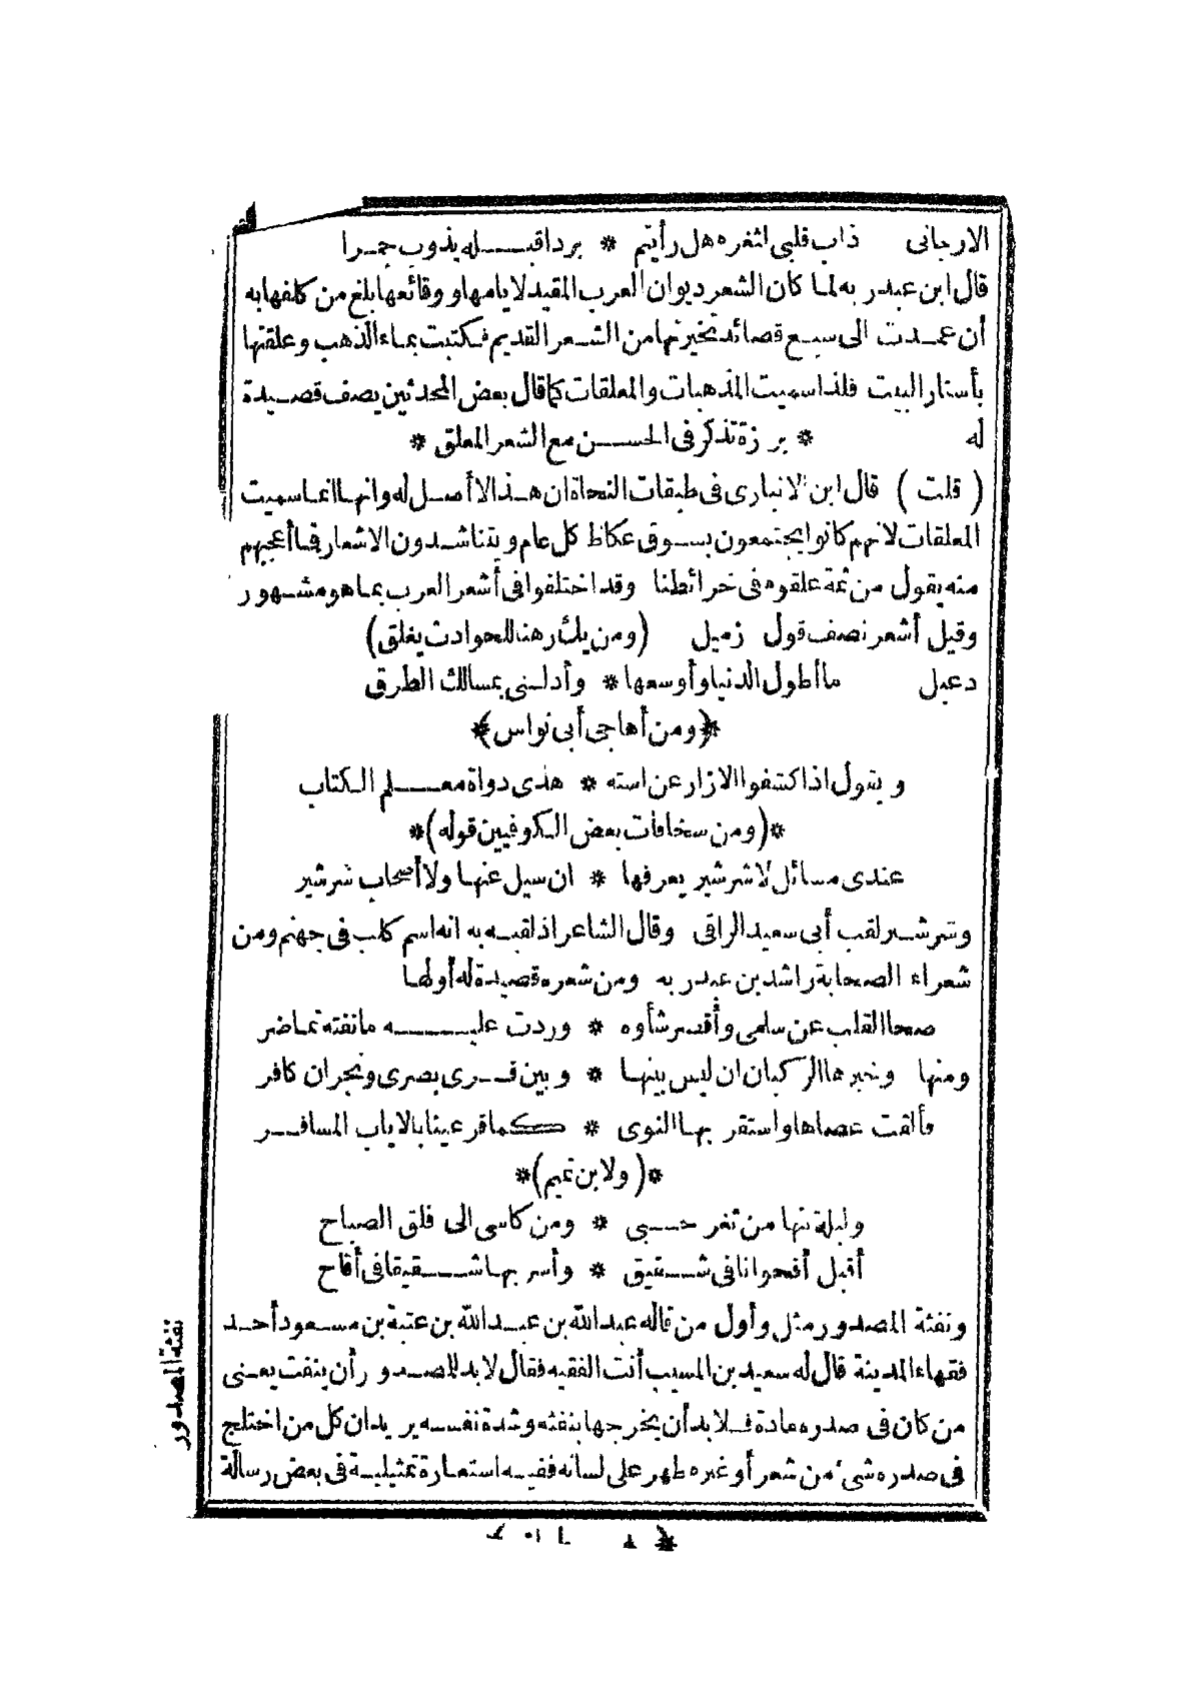 الارجانى ذاب قلبى لثغره هل رأيتم * بردا قبـله يذوب جمـرا
قال ابن عبدربه لما كان الشعر ديوان العرب المقيد لايامها ووقائعها بلغ من كلفها به
أن عمـدت الى سبـع قصائد تخيرتها من الشـعر القديم فـكتبت بماء الذهب وعلقتها
بأستار البيت فلذا سميت المذهبات والمعلقات كما قال بعض المحدثين يصف قصـيدة
له * برزة تذكر فى الحسـن مع الشعر المعلق *
( قلت ) قال ابن الانبارى فى طبقات النحاة ان هـذا لا أصـل له وانهـا انمـا سميت
المعلقات لانهم كانوا يجتمعون بسـوق عكاظ كل عام ويتناشـدون الاشعار فـا أعجبهم
منه يقول من ثمة علقوه فى خرائطنا وقد اختلفوا فى أشعر العرب بما هو مشـهور
وقيل أشعر نصف قول زميل (ومن يك رهنا للحوادث يغلق)
دعبل ما أطول الدنيا وأوسعها * وأدلـنى بمسالك الطرق
*(ومن أهاجى أبى نواس)*
ويقول اذا كشفوا الازار عن استه * هذى دواة معـلم الـكتاب
*(ومن سخافات بعض الـكوفيين قوله)*
عندى مسائل لا شرشير يعرفها * ان سيل عنهـا ولا أصحاب شرشير
وشرشـير لقب أبى سعيد الراقى وقال الشاعر اذ لقبـه به انه اسم كلب فى جهنم ومن
شعراء الصحابة راشد بن عبدربه ومن شعره قصيدة له أولهـا
صحا القلب عن سلمى وأقصر شأوه * وردت عليـه ما نفته تمـاضر
ومنها وخبرها الركبان ان ليس بينهـا * وبين قـرى بصرى ونجران كافر
فألقت عصاها واستقر بهـا النوى * كـما قر عينا بالاياب المسافـر
*( ولابن تميم)*
وليلة بتها من ثغر حـبى * ومن كاسى الى فلق الصباح
أقبل أقحوانا فى شـقيق * وأسر بهـا شـقيقا فى أقاح
ونفثة المصدور مثل وأول من قاله عبد الله بن عبـد الله بن عتبة بن مسـعود أحـد
فقهاء المدينة قال له سعيد بن المسيب أنت الفقيه فقال لابد للمصـدور أن ينفث يعـنى
من كان فى صدره مادة فـلابد أن يخرجها بنفثه وشدة نفسـه يريد ان كل من اختلج
فى صدره شئ من شعر أو غيره ظهر على لسانه ففيـه استعارة تمثيليـة فى بعض رسالة
نفثة المصدور